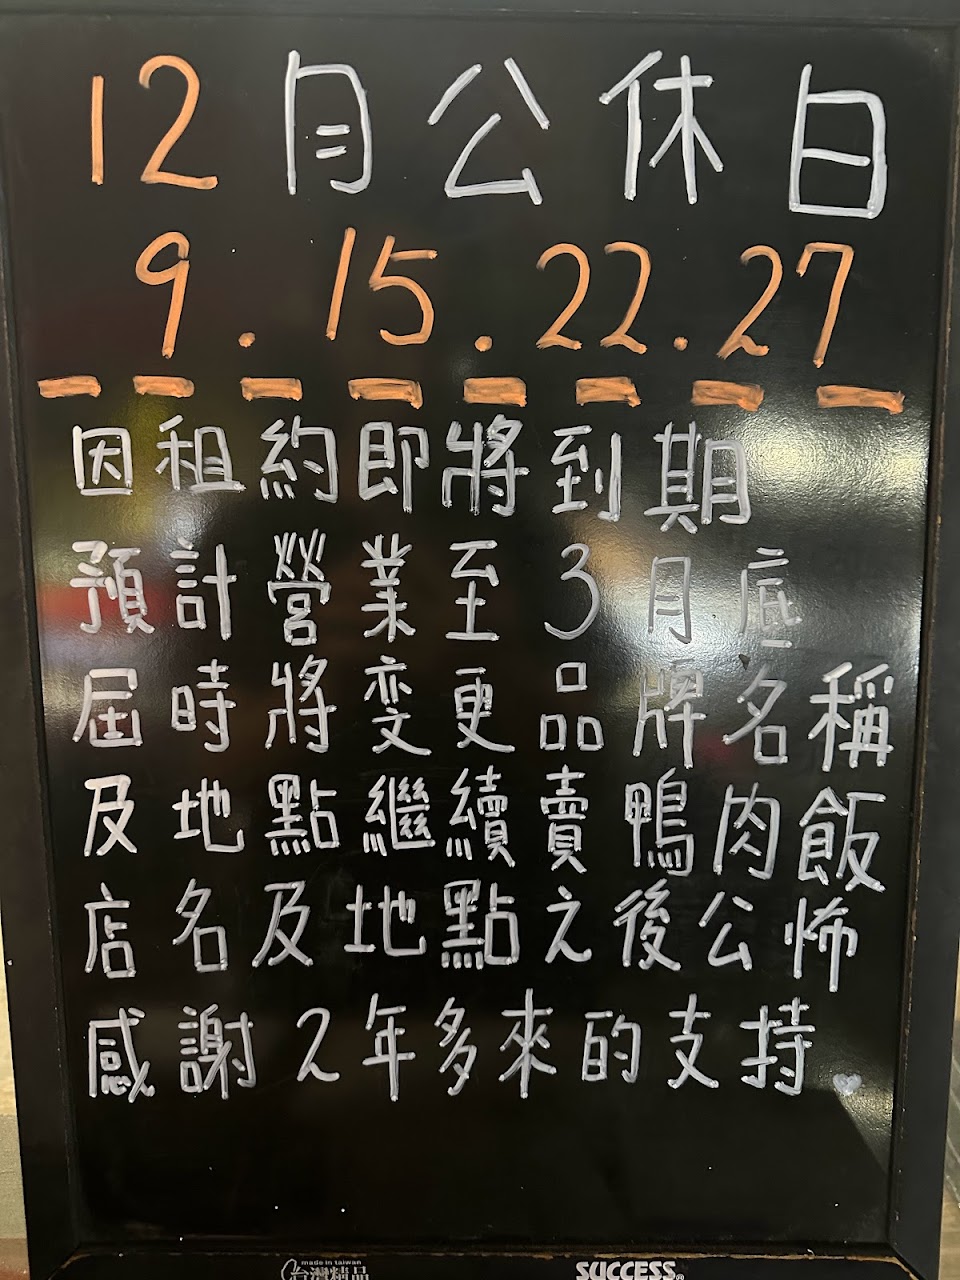 12月公休日
9.15.22.27
因租約即將到期
預計營業至3月底
屆時將変更品牌名稱
及地點繼續賣鴨肉飯
店名及地點之後公怖
感謝2年多來的支持
made in taiwan
台灣精品
SUCCESS®